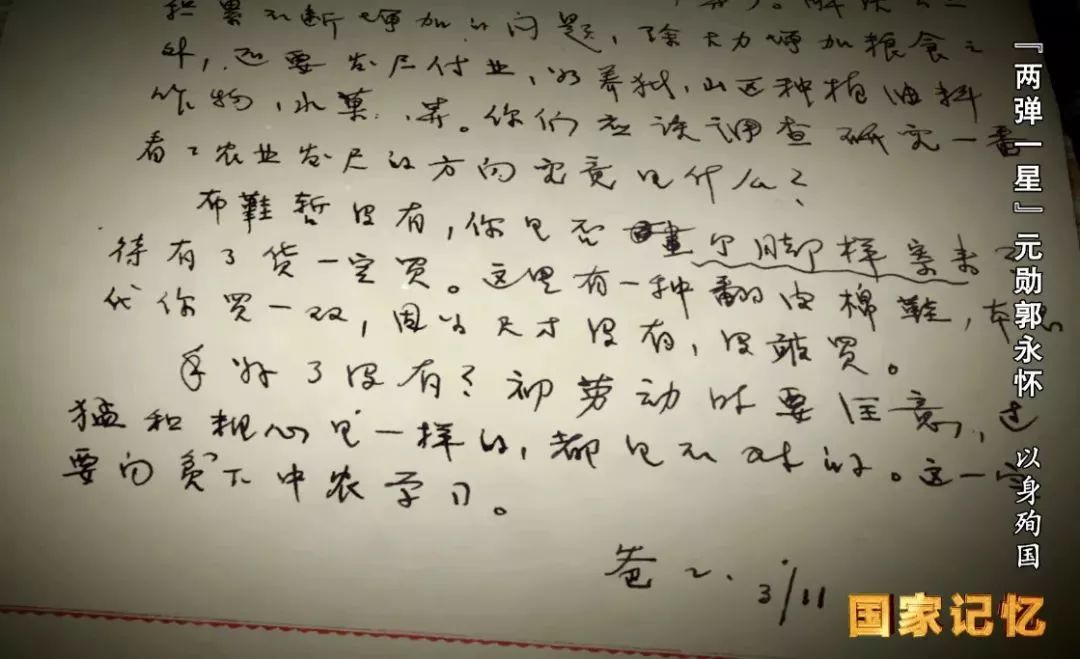 积累不断增加的问题，除大力增加粮食之
外，还要发展付业，如养猪，山区种植油料
作物，水菓，枣。你们应该调查研究一番
看看农业发展的方向究竟是什么？
布鞋暂没有，你是否画个脚样寄来
待有了货一定买。这里有一种翻皮棉鞋，本
代你买一双，因为尺寸没有，没敢买。
手好了没有？初劳动时要注意，过
猛和粗心是一样的，都是不对的。这一
要向贫下中农学习。
爸爸.
3/11
『两弹一星』元勋郭永怀 以身殉国
国家记忆